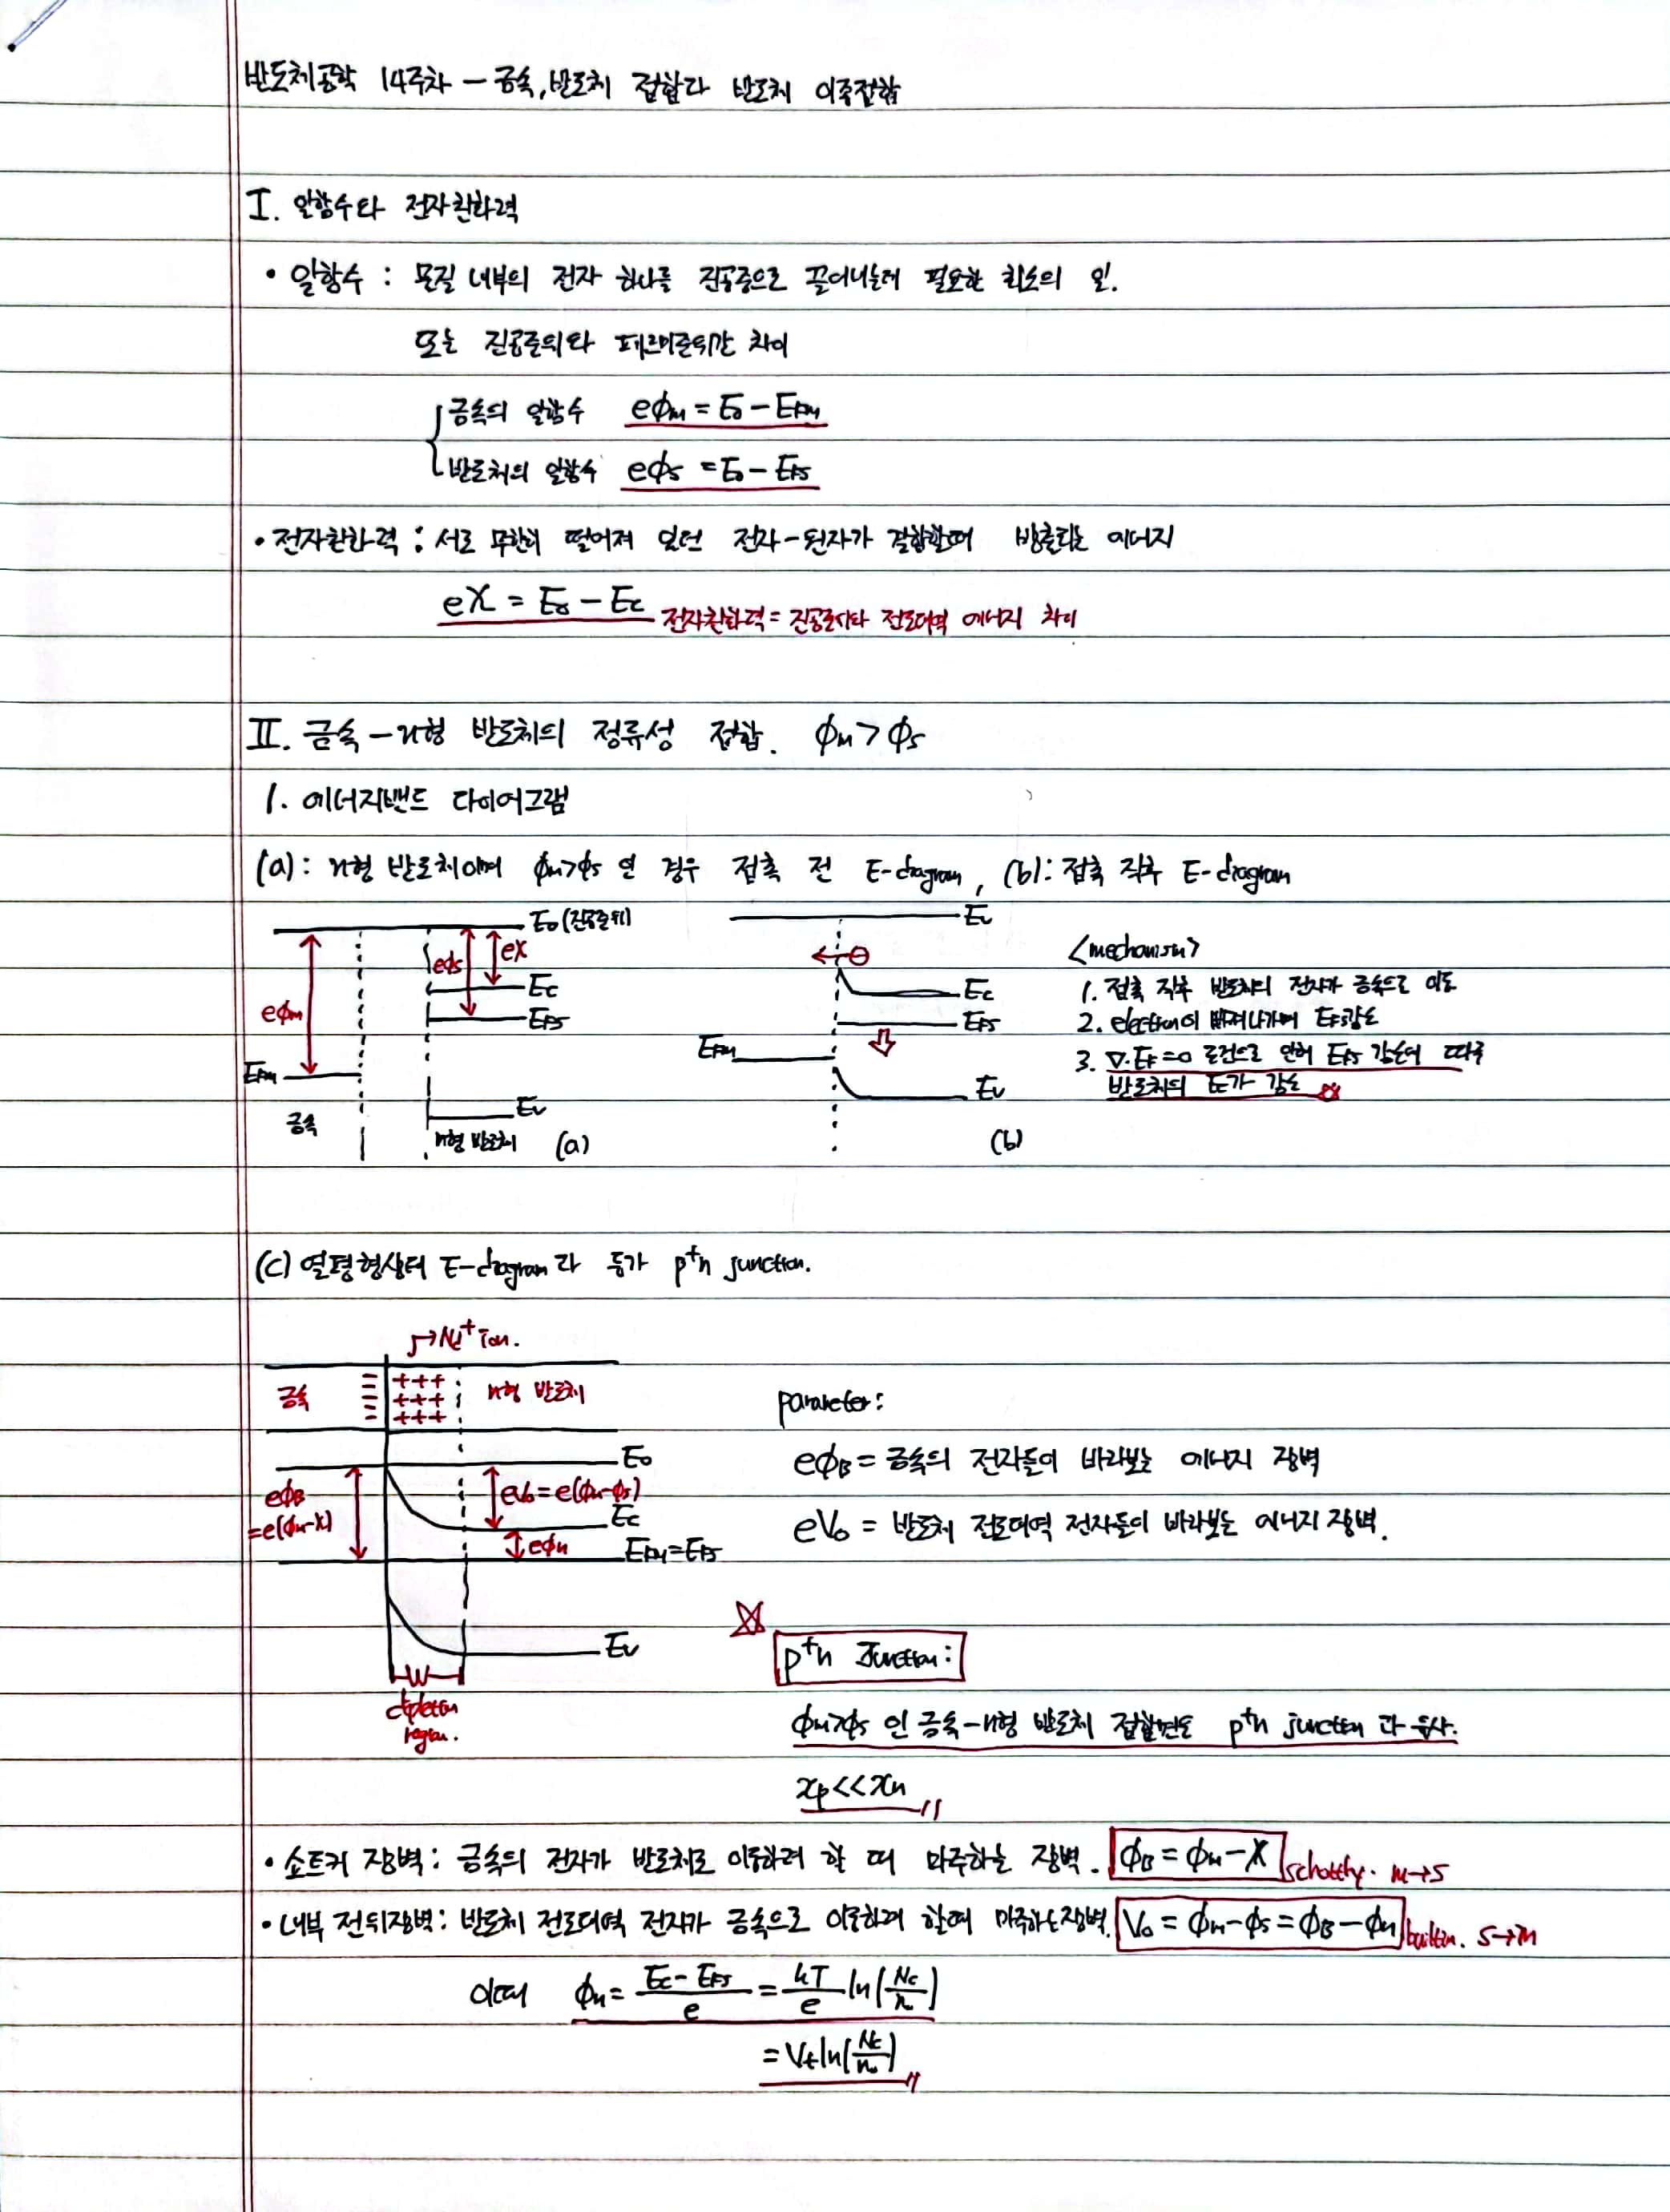 반도체공학 14주차 – 금속,반도체 접합과 반도체 이종접합
I. 일함수와 전자친화력
• 일함수 : 물질 내부의 전자 하나를 진공중으로 끌어내는데 필요한 최소의 일.
또는 진공준위와 페르미준위간 차이
금속의 일함수 eϕm = E0 – EFm
반도체의 일함수 eϕs = E0 – EFs
• 전자친화력 : 서로 무한히 떨어져 있던 전자-원자가 결합할때 방출되는 에너지
eX = E0 – Ec 전자친화력 = 진공준위와 전도대역 에너지 차이
II. 금속 – n형 반도체의 정류성 접합. ϕm > ϕs
1. 에너지밴드 다이어그램
(a): n형 반도체이며 ϕm>ϕs 인 경우 접촉 전 E-diagram, (b): 접촉 직후 E-diagram
E0 (진공준위)
eϕm
eϕs
eX
Ec
EFs
EFm
Ev
금속
n형 반도체
(a)
Ev
⊖
Ec
EFs
EFm
Ev
(b)
<mechanism>
1. 접촉 직후 반도체의 전자가 금속으로 이동
2. electron이 빠져나가며 EFs감소
3. ∇·EF=0 조건으로 인해 EFs 감소에 따라
반도체의 Ec가 감소
(c) 열평형상태 E-diagram과 등가 p⁺n junction.
→Nd⁺ ion.
금속
+++
+++
+++
n형 반도체
E0
eϕB
= e(ϕm-X)
eV0 = e(ϕm-ϕs)
Ec
eϕn
EFm = EFs
Ev
W
depletion
region.
parameter:
eϕB = 금속의 전자들이 바라보는 에너지 장벽
eV0 = 반도체 전도대역 전자들이 바라보는 에너지 장벽.
p⁺n Junction :
ϕm>ϕs 인 금속-n형 반도체 접합면도 p⁺n junction 과 유사.
xp << xn
• 쇼트키 장벽 : 금속의 전자가 반도체로 이동하려 할 때 마주하는 장벽. ϕB = ϕm – X schottky. m→s
• 내부 전위장벽 : 반도체 전도대역 전자가 금속으로 이동하려 할때 마주하는장벽. V0 = ϕm – ϕs = ϕB – ϕn builtin. s→m
이때 ϕn = (Ec – EFs)/e = kT/e ln(Nc/n)
= Vt ln(Nc/n0)